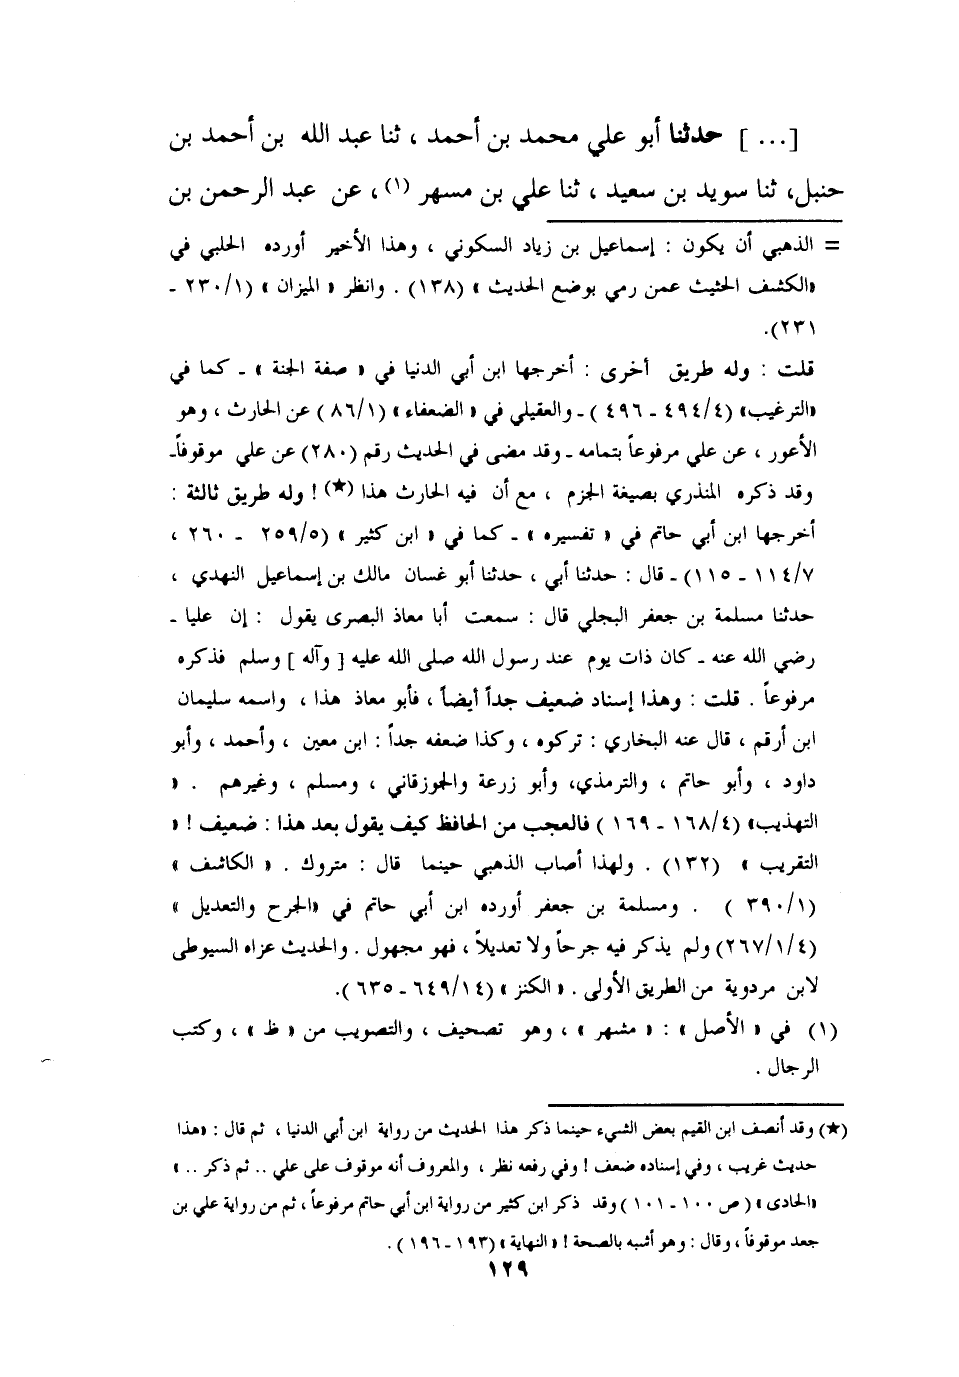 [... ] حدثنا أبو علي محمد بن أحمد ، ثنا عبد الله بن أحمد بن
حنبل، ثنا سويد بن سعيد ، ثنا علي بن مسهر (١) ، عن عبد الرحمن بن
= الذهبي أن يكون : إسماعيل بن زياد السكوني ، وهذا الأخير أورده الحلبي في
«الكشف الحثيث عمن رمي بوضع الحديث » (١٣٨) . وانظر « الميزان » (٢٣٠/١ ـ
٢٣١).
قلت : وله طريق أخرى : أخرجها ابن أبي الدنيا في « صفة الجنة » ـ كما في
«الترغيب» (٤٩٤/٤ ـ ٤٩٦ ) ـ والعقيلي في « الضعفاء » (٨٦/١ ) عن الحارث ، وهو
الأعور ، عن علي مرفوعاً بتمامه ـ وقد مضى في الحديث رقم (٢٨٠) عن علي موقوفاًـ
وقد ذكره المنذري بصيغة الجزم ، مع أن فيه الحارث هذا (★) ! وله طريق ثالثة :
أخرجها ابن أبي حاتم في « تفسيره » ـ كما في « ابن كثير » (٢٥٩/٥ ـ ٢٦٠ ،
١١٤/٧ ـ ١١٥) ـ قال : حدثنا أبي ، حدثنا أبو غسان مالك بن إسماعيل النهدي ،
حدثنا مسلمة بن جعفر البجلي قال : سمعت أبا معاذ البصرى يقول : إن عليا ـ
رضي الله عنه ـ كان ذات يوم عند رسول الله صلى الله عليه [ وآله ] وسلم فذكره
مرفوعاً . قلت : وهذا إسناد ضعيف جداً أيضاً ، فأبو معاذ هذا ، واسمه سليمان
ابن أرقم ، قال عنه البخاري : تركوه ، وكذا ضعفه جداً : ابن معين ، وأحمد ، وأبو
داود ، وأبو حاتم ، والترمذي، وأبو زرعة والجوزقاني ، ومسلم ، وغيرهم . «
التهذيب» (١٦٨/٤ ـ ١٦٩ ) فالعجب من الحافظ كيف يقول بعد هذا : ضعيف ! «
التقريب » (١٣٢) . ولهذا أصاب الذهبي حينما قال : متروك . « الكاشف »
(٣٩٠/١ ) . ومسلمة بن جعفر أورده ابن أبي حاتم في «الجرح والتعديل »
(٢٦٧/١/٤) ولم يذكر فيه جرحاً ولا تعديلاً ، فهو مجهول . والحديث عزاه السيوطى
لابن مردوية من الطريق الأولى . « الكنز » (٦٤٩/١٤ ـ ٦٣٥ ).
(١) في « الأصل » : « مشهر » ، وهو تصحيف ، والتصويب من « ظ » ، وكتب
الرجال .
(★) وقد أنصف ابن القيم بعض الشيء حينما ذكر هذا الحديث من رواية ابن أبي الدنيا ، ثم قال : «هذا
حديث غريب ، وفي إسناده ضعف ! وفي رفعه نظر ، والمعروف أنه موقوف على علي .. ثم ذكر .. »
«الحادى » ( ص ١٠٠ ـ ١٠١ ) وقد ذكر ابن كثير من رواية ابن أبي حاتم مرفوعاً ، ثم من رواية علي بن
جعد موقوفاً ، وقال : وهو أشبه بالصحة ! « النهاية » (١٩٣ ـ ١٩٦ ) .
١٢٩